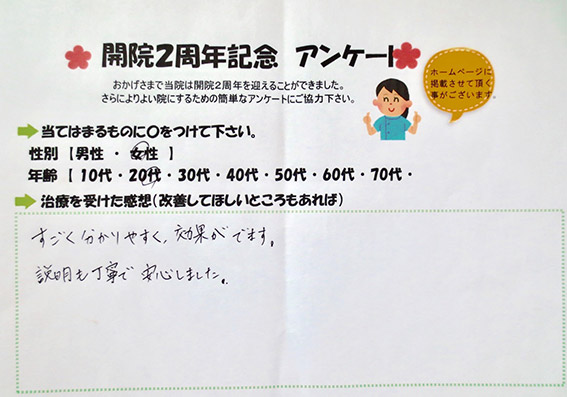 開院2周年記念 アンケート
おかげさまで当院は開院2周年を迎えることができました。
さらによりよい院にするための簡単なアンケートにご協力下さい。
ホームページに
掲載させて頂く
事がございます。
当てはまるものに〇をつけて下さい。
性別 【 男性 ・ 女性 】
年齢 【 10代・20代・30代・40代・50代・60代・70代・
治療を受けた感想(改善してほしいところもあれば)
すごく分かりやすく、効果がでます。
説明も丁寧で安心しました。